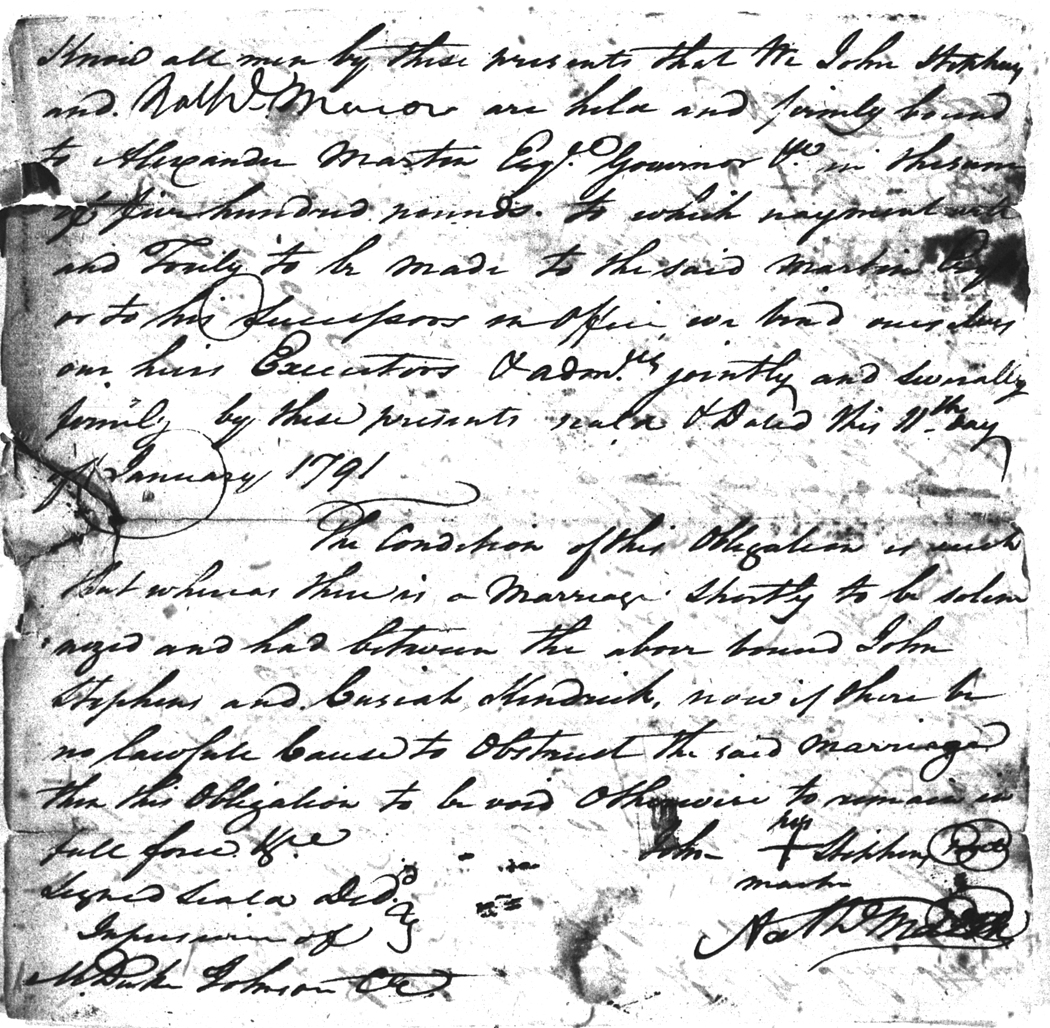 Know all men by these presents that We John Stephens
and Nathl. Macon are held and firmly bound
to Alexander Martin Esqr. Governor &c in the sum
of five hundred pounds. to which payment well
and Truly to be made to the said Martin Esq
or to his Successors in office we bind ourselves
our heirs Executors & admrs. jointly and severally
firmly by these presents seald & Dated this 11th. day
of January 1791
The Condition of this Obligation is such
that whereas there is a Marriage Shortly to be solem
nized and had between the above bound John
Stephens and Cusiah Kindrick, now if there be
no lawfull Cause to Obstruct the said Marriage
then this Obligation to be void Otherwise to remain in
full force &c
John his + Stephens Seal
mark
Signed Seald Dld.
In presence of
Nathl
M. Duke Johnson CC